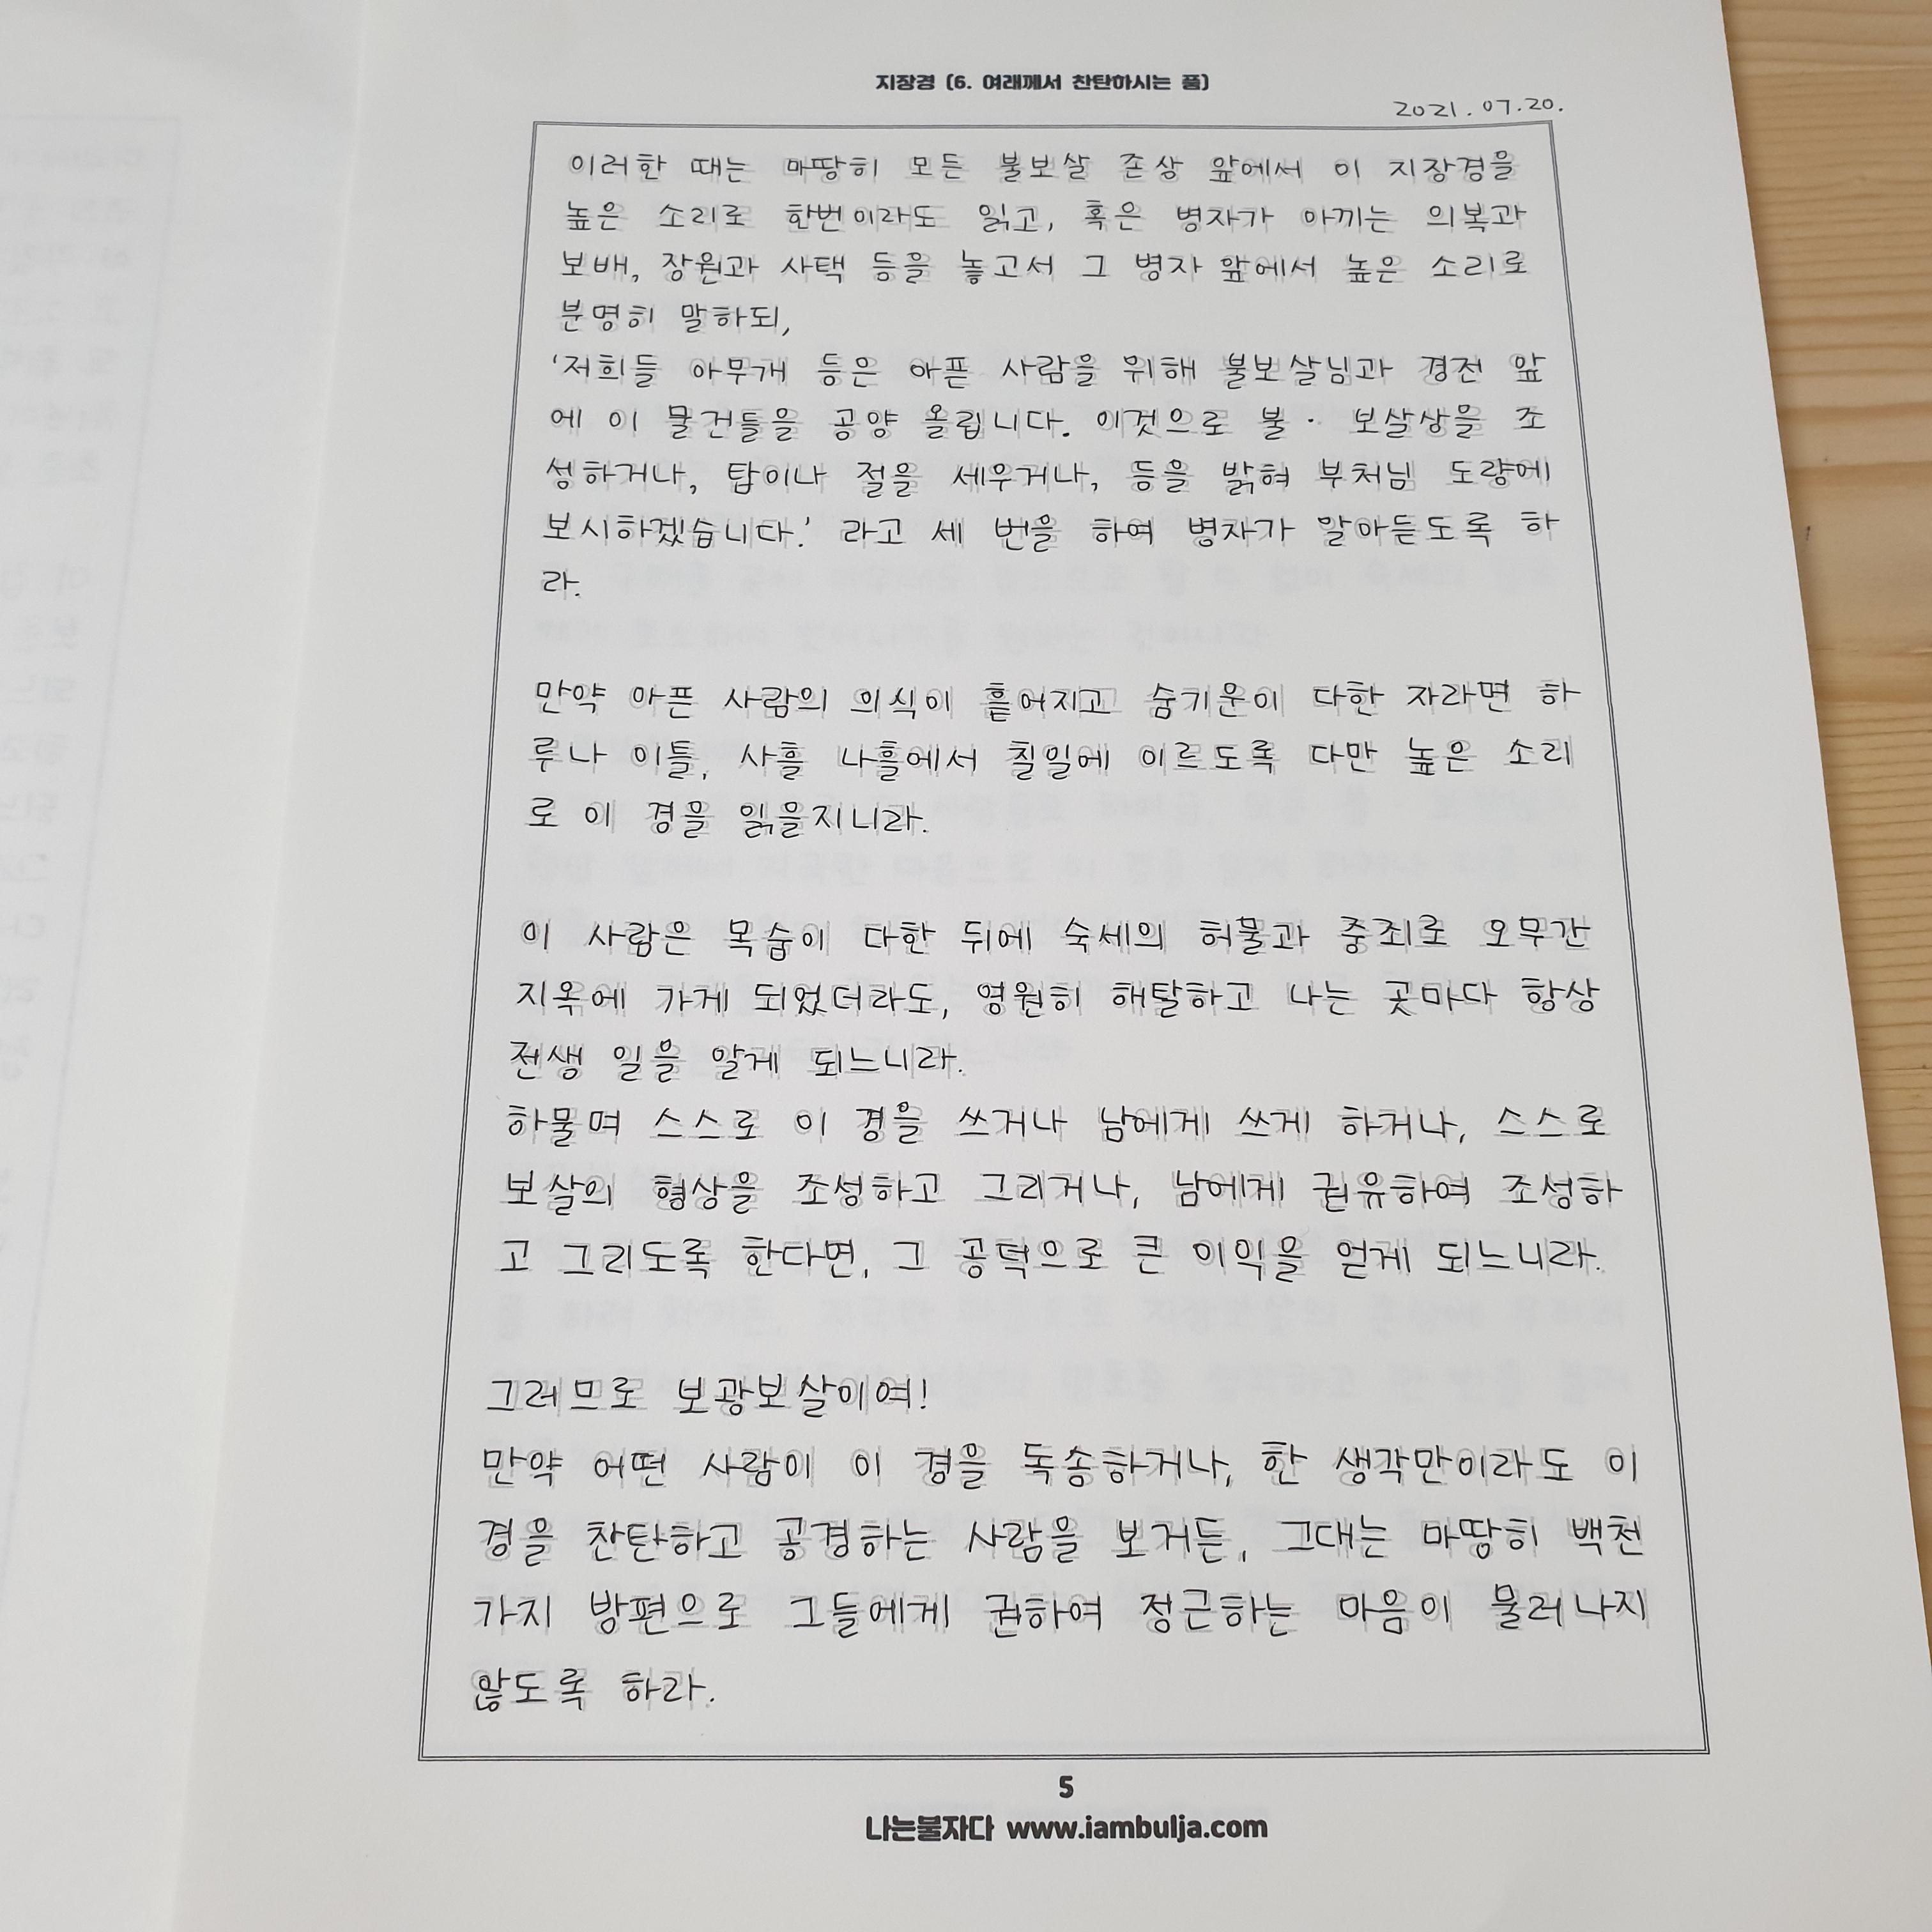 지장경 (6. 여래께서 찬탄하시는 품)
2021.07.20.
이러한 때는 마땅히 모든 불보살 존상 앞에서 이 지장경을
높은 소리로 한번이라도 읽고, 혹은 병자가 아끼는 의복과
보배, 장원과 사택 등을 놓고서 그 병자 앞에서 높은 소리로
분명히 말하되,
'저희들 아무개 등은 아픈 사람을 위해 불보살님과 경전 앞
에 이 물건들을 공양 올립니다. 이것으로 불· 보살상을 조
성하거나, 탑이나 절을 세우거나, 등을 밝혀 부처님 도량에
보시하겠습니다.' 라고 세 번을 하여 병자가 알아듣도록 하
라.
만약 아픈 사람의 의식이 흩어지고 숨기운이 다한 자라면 하
루나 이틀, 사흘 나흘에서 칠일에 이르도록 다만 높은 소리
로 이 경을 읽을지니라.
이 사람은 목숨이 다한 뒤에 숙세의 허물과 중죄로 오무간
지옥에 가게 되었더라도, 영원히 해탈하고 나는 곳마다 항상
전생 일을 알게 되느니라.
하물며 스스로 이 경을 쓰거나 남에게 쓰게 하거나, 스스로
보살의 형상을 조성하고 그리거나, 남에게 권유하여 조성하
고 그리도록 한다면, 그 공덕으로 큰 이익을 얻게 되느니라.
그러므로 보광보살이여!
만약 어떤 사람이 이 경을 독송하거나, 한 생각만이라도 이
경을 찬탄하고 공경하는 사람을 보거든, 그대는 마땅히 백천
가지 방편으로 그들에게 권하여 정근하는 마음이 물러나지
않도록 하라.
5
나는불자다 www.iambulja.com